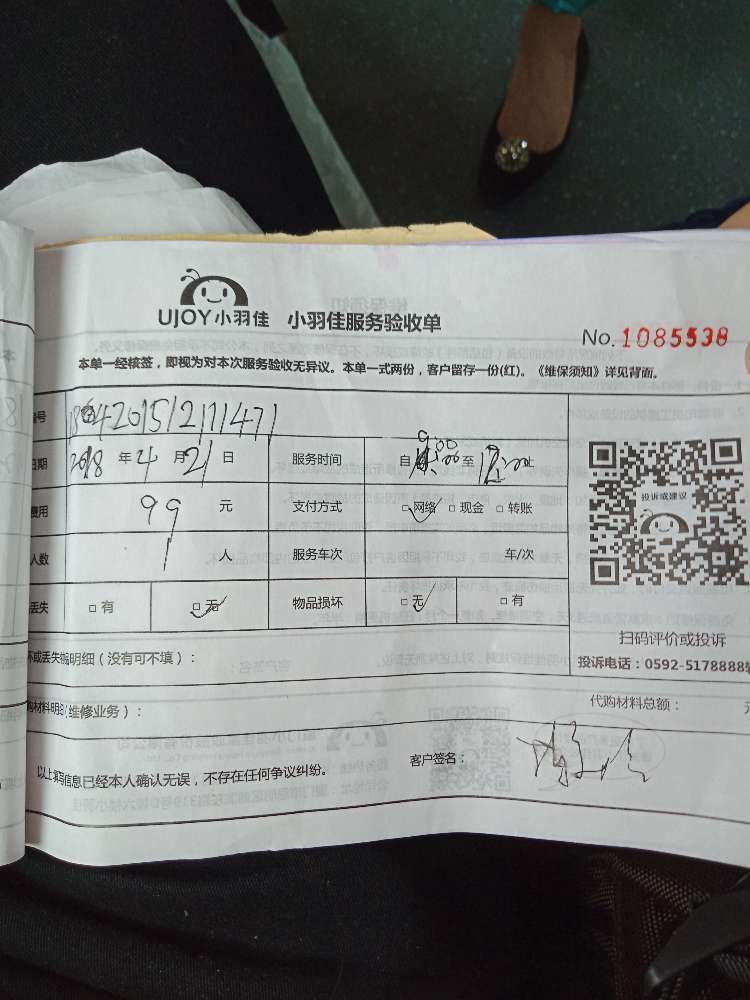 UJOY小羽佳 小羽佳服务验收单
No. 1085538
本单一经核签，即视为对本次服务验收无异议。本单一式两份，客户留存一份(红)。《维保须知》详见背面。
编号
日期 2018 年 4 月 21 日 服务时间 自 9:00 至 12:00 止
费用 99 元 支付方式 □网络 □现金 □转账
人数 1 人 服务车次 车/次
丢失 □有 □无 物品损坏 □无 □有
投诉或建议
扫码评价或投诉
投诉电话：0592-5178888转
坏或丢失物明细（没有可不填）：
购材料明细(维修业务）：
代购材料总额： 元
以上填写信息已经本人确认无误，不存在任何争议纠纷。
客户签名：